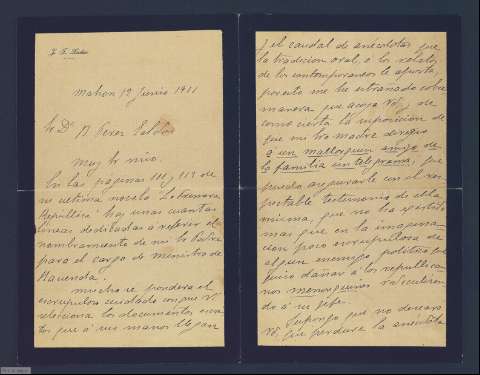 Mahon 12 Junio 1911
Sr Dn B. Perez Galdós
Muy Sr mio:
En las páginas 111 y 112 de
su ultima novela "La Primera
Republica" hay unas cuantas
lineas dedicadas á referir el
nombramiento de mi Sr Padre
para el cargo de ministro de
Hacienda.
mucho se pondera el
escrupuloso cuidado con que V.
selecciona los documentos cuan
tos que á sus manos llegan
y el caudal de anecdotas que
la tradicion oral, o los relatos
de los contemporaneos le aporta,
por esto me ha extrañado sobre
manera que acoja Vd y dé
como cierta la suposicion de
que mi Sra madre dirigió
a un mallorquin amigo de
la familia un telegrama, que
puedo asegurarle con el res
petable testimonio de ella
misma, que no ha existido
mas que en la imagina
cion poco escrupulosa de
algun enemigo politico que
quiso dañar á los republica
nos menorquines ridiculizan
do á su jefe.
Supongo que no deseará
Vd. que perdure la anecdota